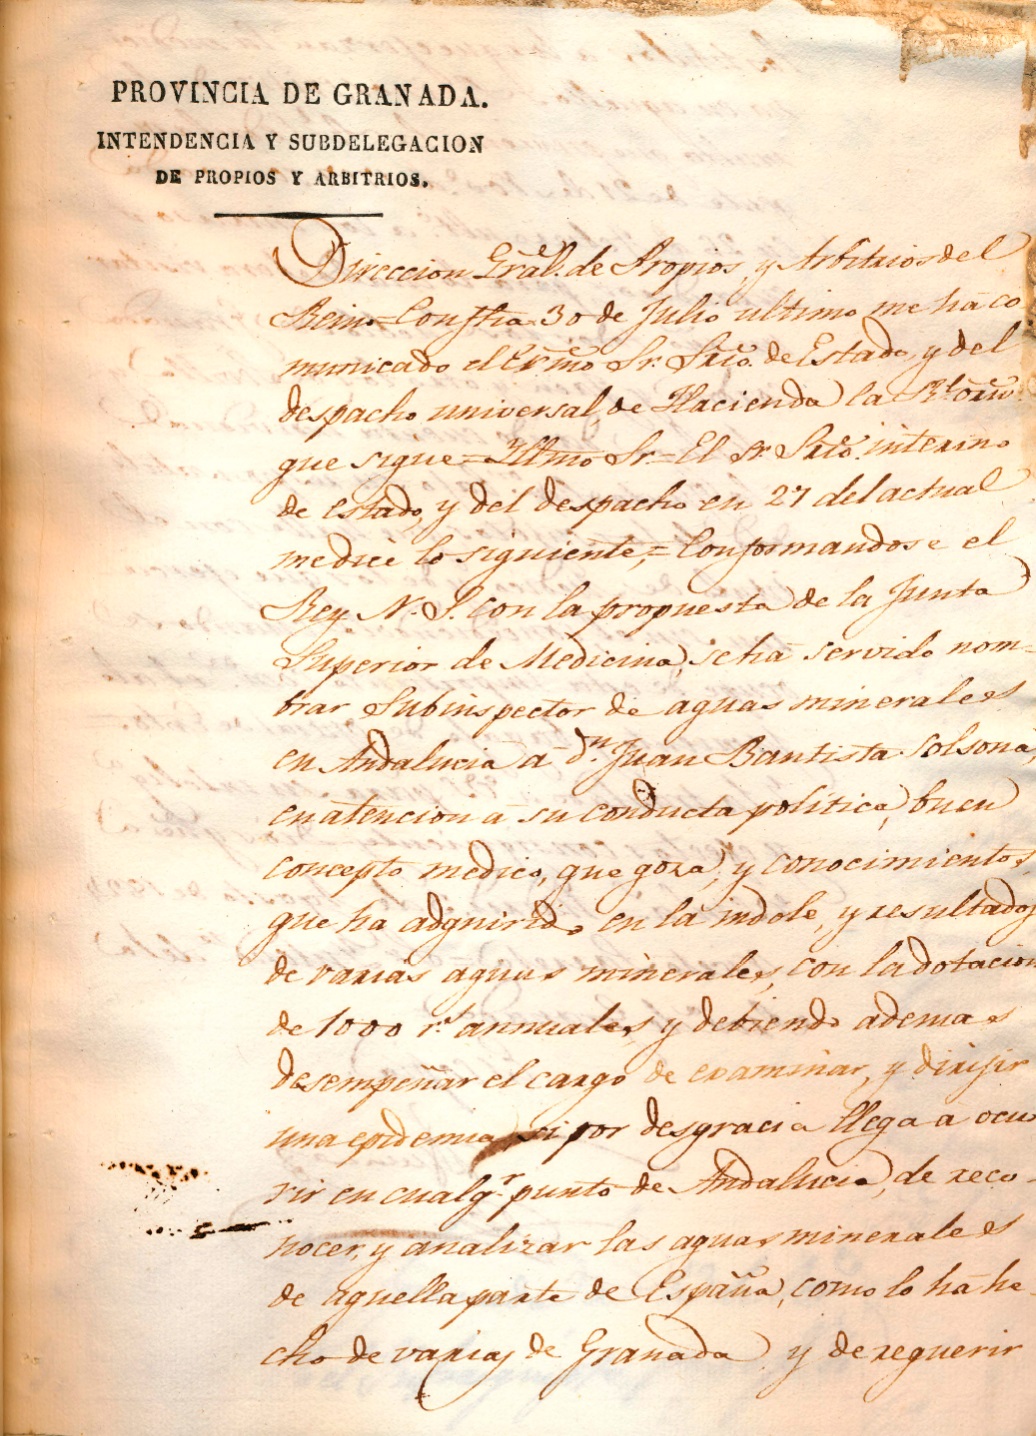 PROVINCIA DE GRANADA.
INTENDENCIA Y SUBDELEGACION
DE PROPIOS Y ARBITRIOS.
Direccion Gral. de Propios y Arbitrios del
Reino = Con fha. 30 de Julio ultimo me há co
municado el Exmo Sr. Srio. de Estado, y del
despacho universal de Hacienda la Rl. orn.
que sigue = Illmo Sr. = El Sr. Srio. interino
de estado, y del despacho en 27 del actual
me dice lo siguiente, = Conformandose el
Rey N. S. con la propuesta de la Junta
Superior de Medicina, se há servido nom-
brar Subinspector de aguas minerales
en Andalucia á dn. Juan Bautista Solsona,
en atencion á su conducta politica, buen
concepto medico, que goza, y conocimientos
que ha adquirido en la indole, y resultados
de varias aguas minerales, con la dotacion
de 1000 rs. annuales, y debiendo ademas
desempeñar el cargo de examinar, y dirijir
una epidemia, si por desgracia llega a ocu
rrir en cualqr. punto de Andalucia, de reco-
nocer, y analizar las aguas minerales
de aquella parte de España, como lo há he-
cho de varias de Granada y de requerir